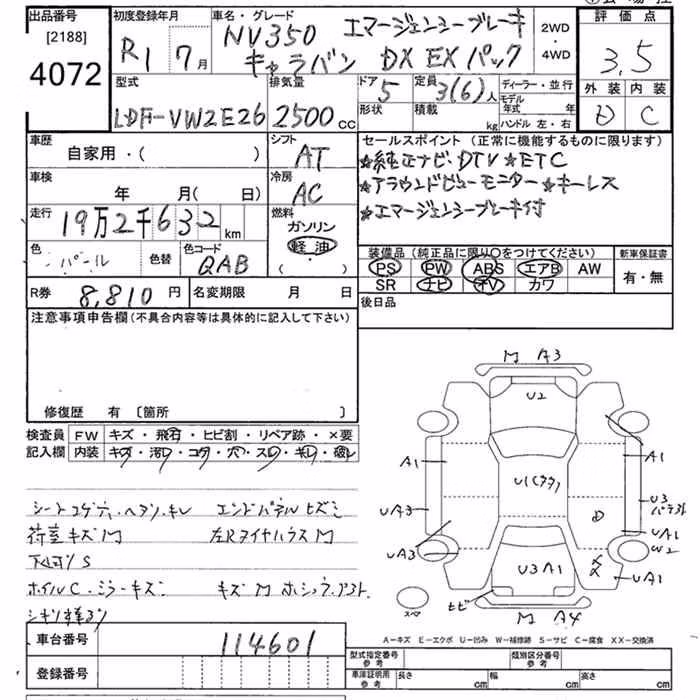 出品番号 [2188] 4072
初度登録年月 R1 7月
車名・グレード NV350 エマージェンシーブレーキ
キャラバン DX EXパック
2WD
4WD
評価点 3,5
外装 D 内装 C
型式 LDF-VW2E26
排気量 2500cc
ドア 5 形状
定員 3(6)人 積載 kg
ディーラー・並行
モデル年式 年
ハンドル 左・右
車歴 自家用・( )
シフト AT
車検 年 月(日)
冷房 AC
走行 19万2千632km
燃料 ガソリン
軽油
( ・ )
色 パール 色替 色コード QAB
R券 8,810円 名変期限 月 日
セールスポイント(正常に機能するものに限ります)
☆純正ナビ DTV ☆ETC
☆アラウンドビューモニター ☆キーレス
☆エマージェンシーブレーキ付
装備品(純正品に限り○をつけてください) 新車保証書
PS PW ABS エアB AW 有・無
SR ナビ TV カワ
後日品
注意事項申告欄(不具合内容等は具体的に記入して下さい)
修復歴 有 〔箇所 〕
検査員 FW キズ・飛石・ヒビ割・リペア跡・×要
記入欄 内装 キズ・汚レ・コゲ・穴・スレ・キレ・破レ
荷室キズM 左Rタイヤハウス M
下回りS
ホイルC・ミラーキズ
車台番号 114601
登録番号
M A3
U2
A1
A1
U1(タタ)
UA3
U3
D
UA1
UA3
W2
XX
UA1
U3 A1
ヒビ
M A4
スペア
A-キズ E-エクボ U-凹み W-補修跡 S-サビ C-腐食 XX-交換済
型式指定番号 参考 類別区分番号 参考
車庫証明用 参考 長さ cm 幅 cm 高さ cm